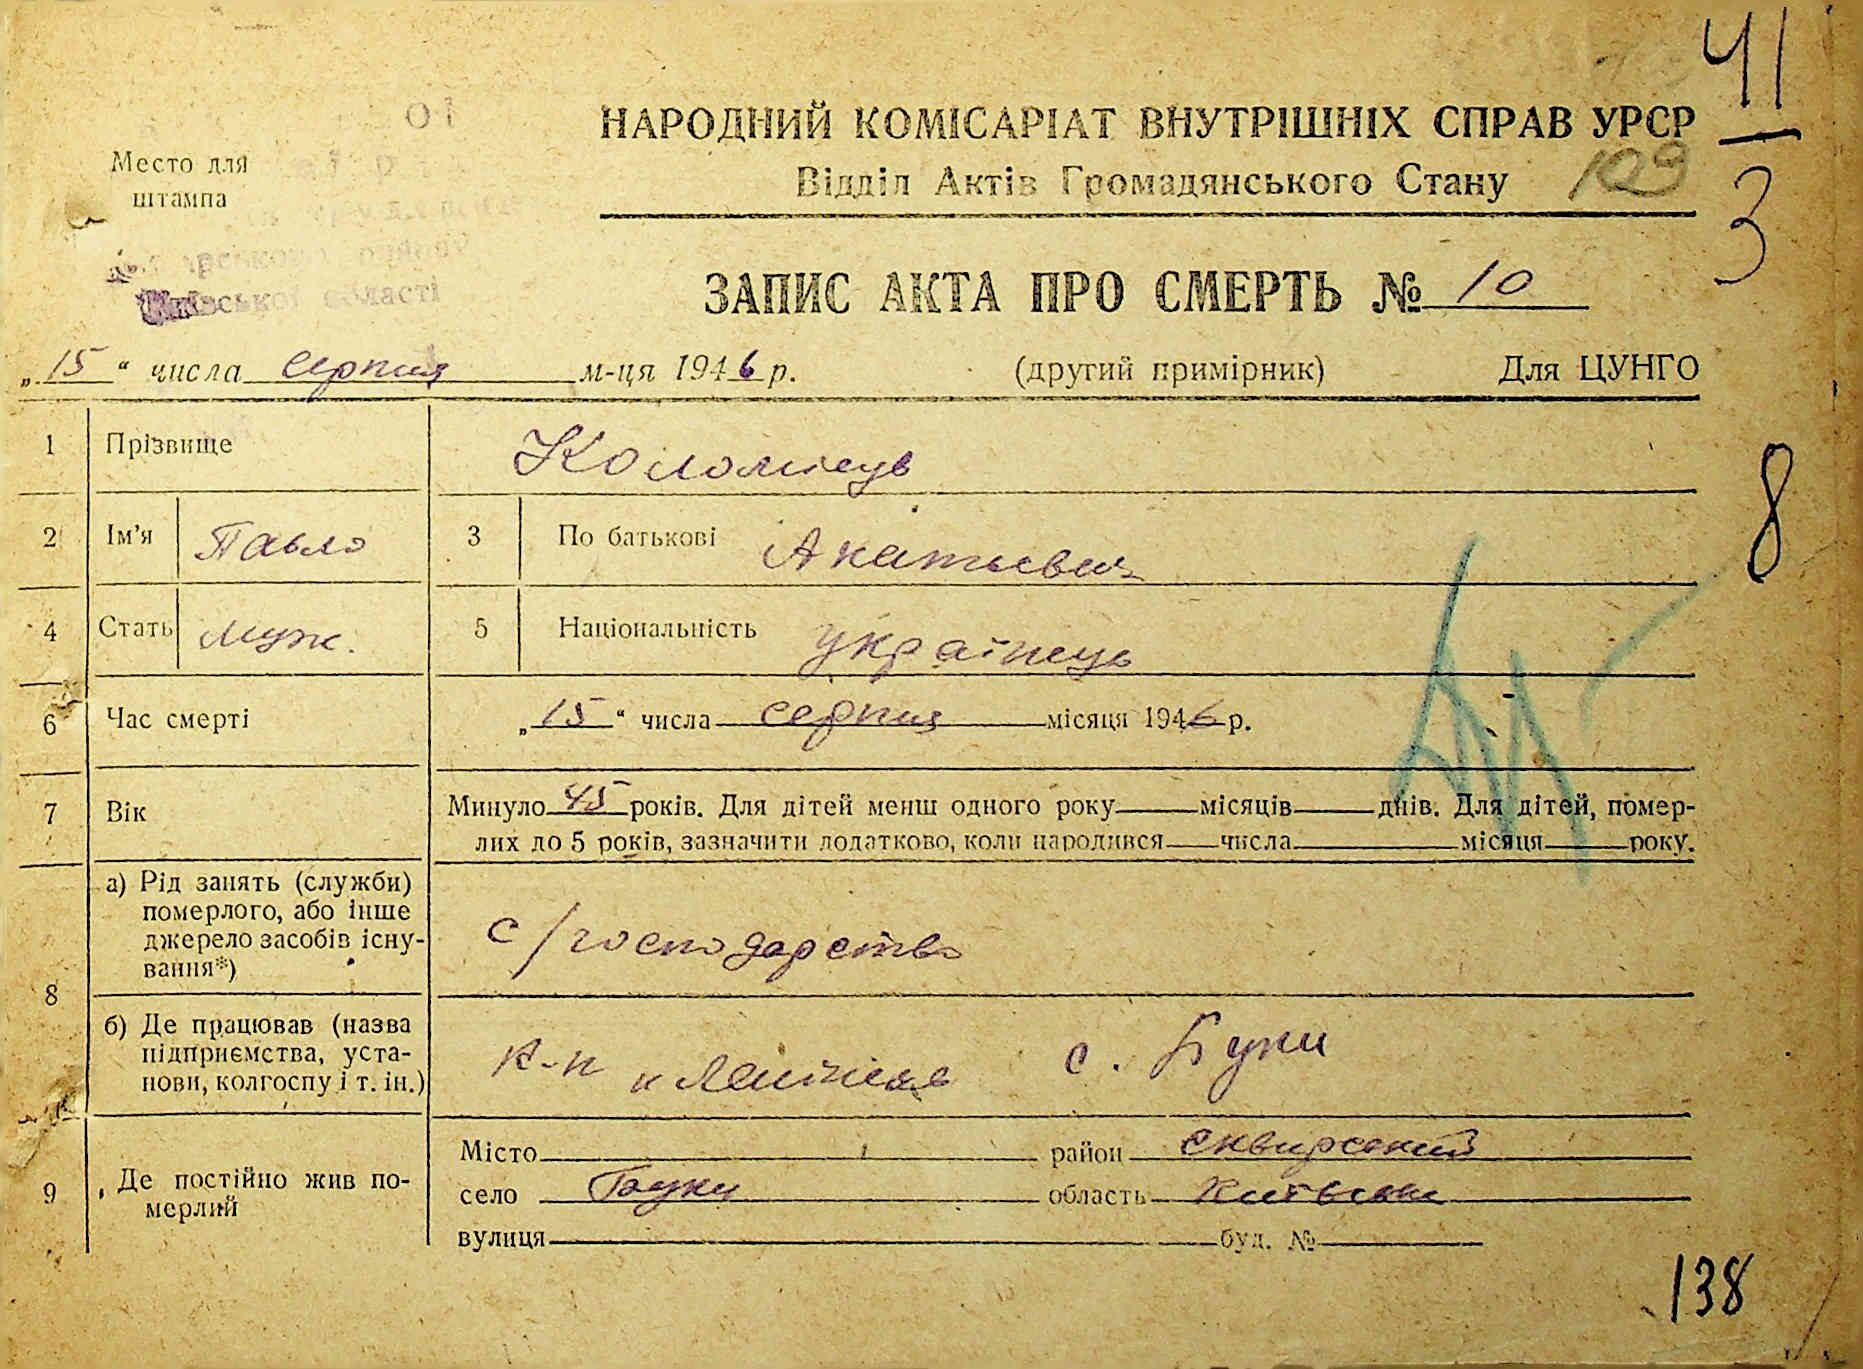 41
3
НАРОДНИЙ КОМІСАРІАТ ВНУТРІШНІХ СПРАВ УРСР
Відділ Актів Громадянського Стану
109
Место для
штампа
Київської області
ЗАПИС АКТА ПРО СМЕРТЬ № 10
„15“ числа серпня м-ця 1946 р. (другий примірник) Для ЦУНГО
1 Прізвище Коломієць
8
2 Ім'я Павло 3 По батькові
4 Стать муж. 5 Національність українець
6 Час смерті „15“ числа серпня місяця 1946 р.
7 Вік Минуло 45 років. Для дітей менш одного року місяців днів. Для дітей, помер-
лих до 5 років, зазначити додатково, коли народився числа місяця року.
8 а) Рід занять (служби)
померлого, або інше
джерело засобів існу-
вання*)
с/господарство
б) Де працював (назва
підприємства, уста-
нови, колгоспу і т. ін.)
к-п с. Буки
9 Де постійно жив по-
мерлий
Місто район Сквирский
село Буки область Київська
вулиця буд. №
138